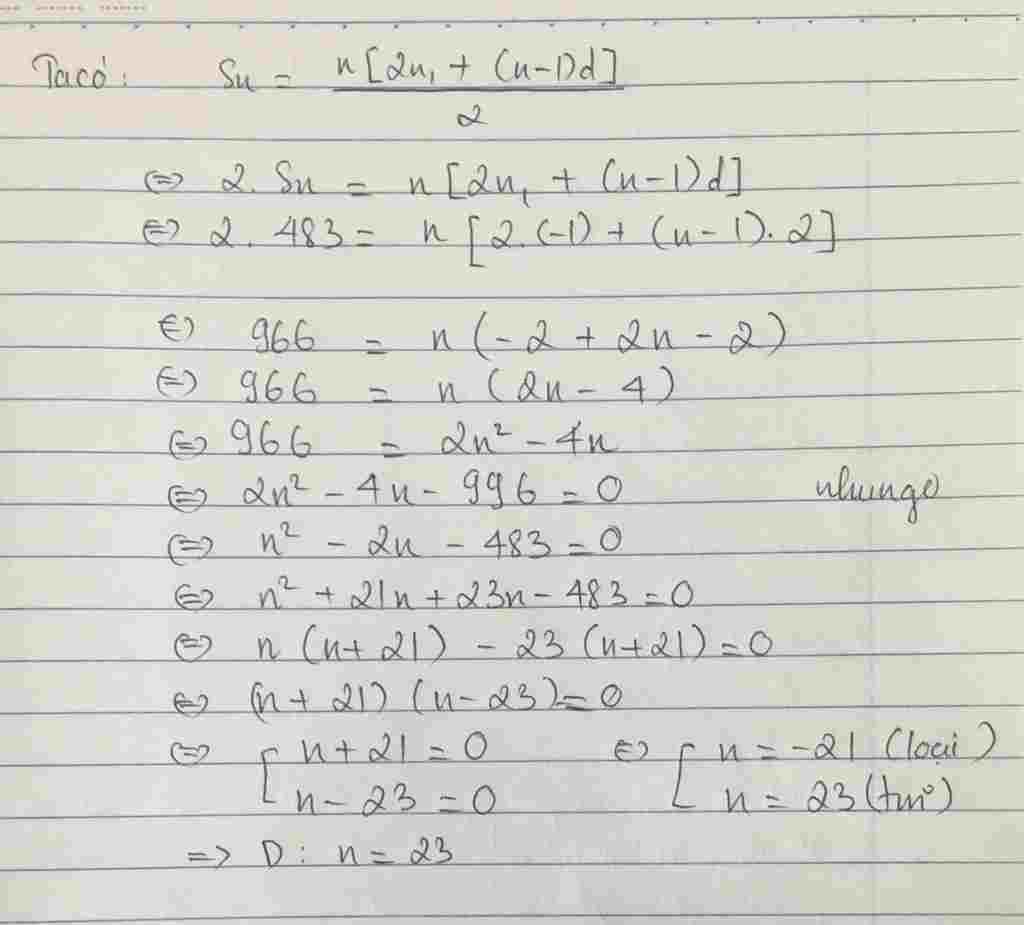 Ta có: Sn = n[2u₁ + (n-1)d] / 2
⇔ 2. Sn = n[2u₁ + (n-1)d]
⇔ 2. 483 = n[2.(-1) + (n-1).2]
⇔ 966 = n(-2 + 2n - 2)
⇔ 966 = n(2n - 4)
⇔ 966 = 2n² - 4n
⇔ 2n² - 4n - 996 = 0
⇔ n² - 2n - 483 = 0
⇔ n² + 21n + 23n - 483 = 0
⇔ n(n+21) - 23(n+21) = 0
⇔ (n+21)(n-23) = 0
⇔ [ n+21 = 0 ⇔ [ n = -21 (loại)
n - 23 = 0 n = 23 (tm)
=> D: n = 23